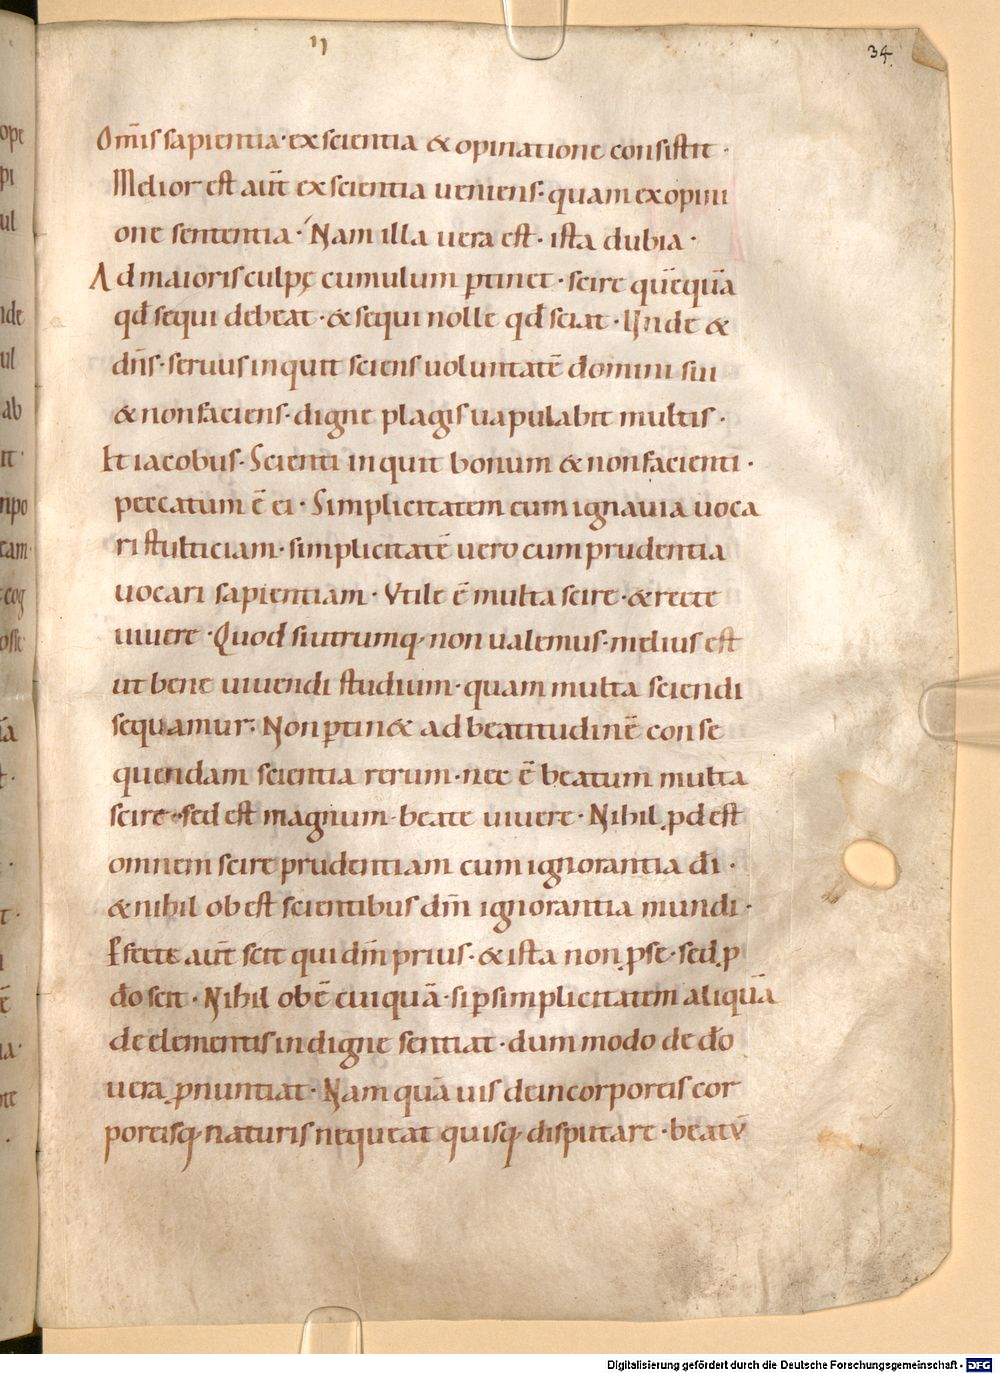 11
34.
Om̄is sapientia· ex scientia & opinatione consistit·
Melior est aut̄ ex scientia ueniens: quam ex opini
one sententia· Nam illa uera est· ista dubia·
Ad maioris culpę cumulum ꝑtinet· scire quēquā
qđ sequi debeat· & sequi nolle qđ sciat· Unde &
dn̄s· seruus inquit sciens uoluntatē domini sui
& non faciens· digne plagis uapulabit multis·
Et iacobus· Scienti inquit bonum & non facienti·
peccatum ē ei· Simplicitatem cum ignauia uoca
ri stulticiam· simplicitatē uero cum prudentia
uocari sapientiam· Vtile ē multa scire· & recte
uiuere· Quod si utrumq; non ualemus· melius est
ut bene uiuendi studium· quam multa sciendi
sequamur· Non ꝑtin& ad beatitudinē conse
quendam scientia rerum· nec ē beatum multa
scire· sed est magnum beate uiuere· Nihil ꝓdest
omnem scire prudentiam cum ignorantia dī·
& nihil obest scientibus dm̄ ignorantia mundi·
Perfecte aut̄ scit qui dm̄ prius· & ista non ꝓ se· sed ꝓ
do scit· Nihil obē cuiquā· si ꝑ simplicitatem aliquā
de elementis indigne sentiat· dum modo de do
uera ꝓnuntiat· Nam quā uis de incorporeis cor
poreisq; naturis nequeat quisq; disputare· beatū
Digitalisierung gefördert durch die Deutsche Forschungsgemeinschaft - DFG